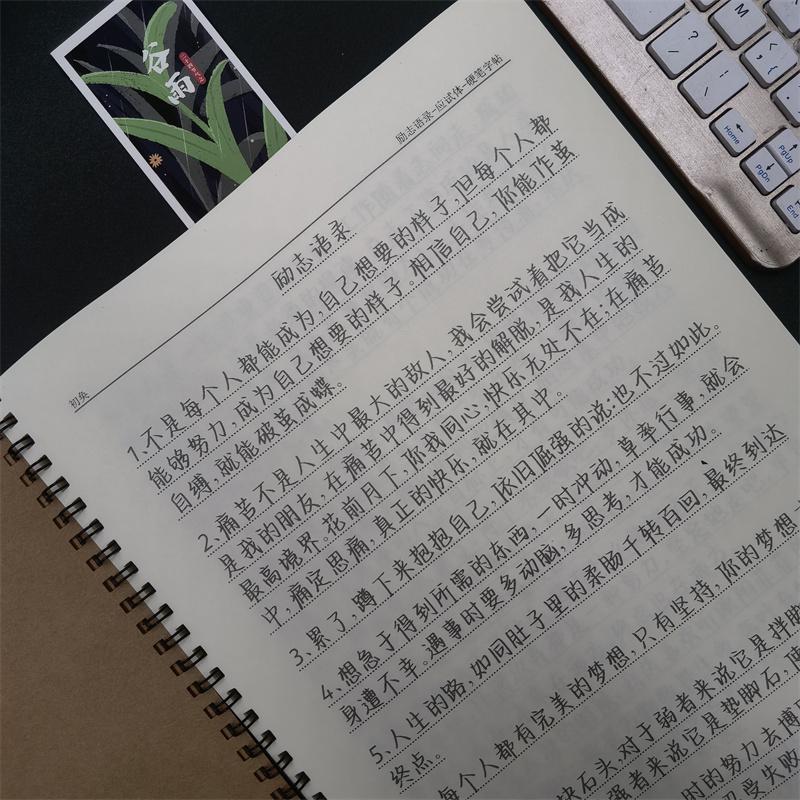 谷雨
励志语录-应试体-硬笔字帖
励志语录
1、不是每个人都能成为，自己想要的样子，但每个人都
能够努力，成为自己想要的样子。相信自己，你能作茧
自缚，就能破茧成蝶。
2、痛苦不是人生中最大的敌人，我会尝试着把它当成
是我的朋友，在痛苦中得到最好的解脱，是我人生的
最高境界。花前月下，你我同心，快乐无处不在，在痛苦
中，痛定思痛，真正的快乐，就在其中。
3、累了，蹲下来抱抱自己，依旧倔强的说：也不过如此。
4、想急于得到所需的东西，一时冲动，草率行事，就会
身遭不幸。遇事时要多动脑，多思考，才能成功。
5、人生的路，如同肚子里的柔肠千转百回，最终到达
终点。
每个人都有完美的梦想，只有坚持，你的梦想
块石头，对于弱者来说它是拌脚
强者来说它是垫脚石，
时的努力去博
受失败
Home
PgUp
PgDn
End